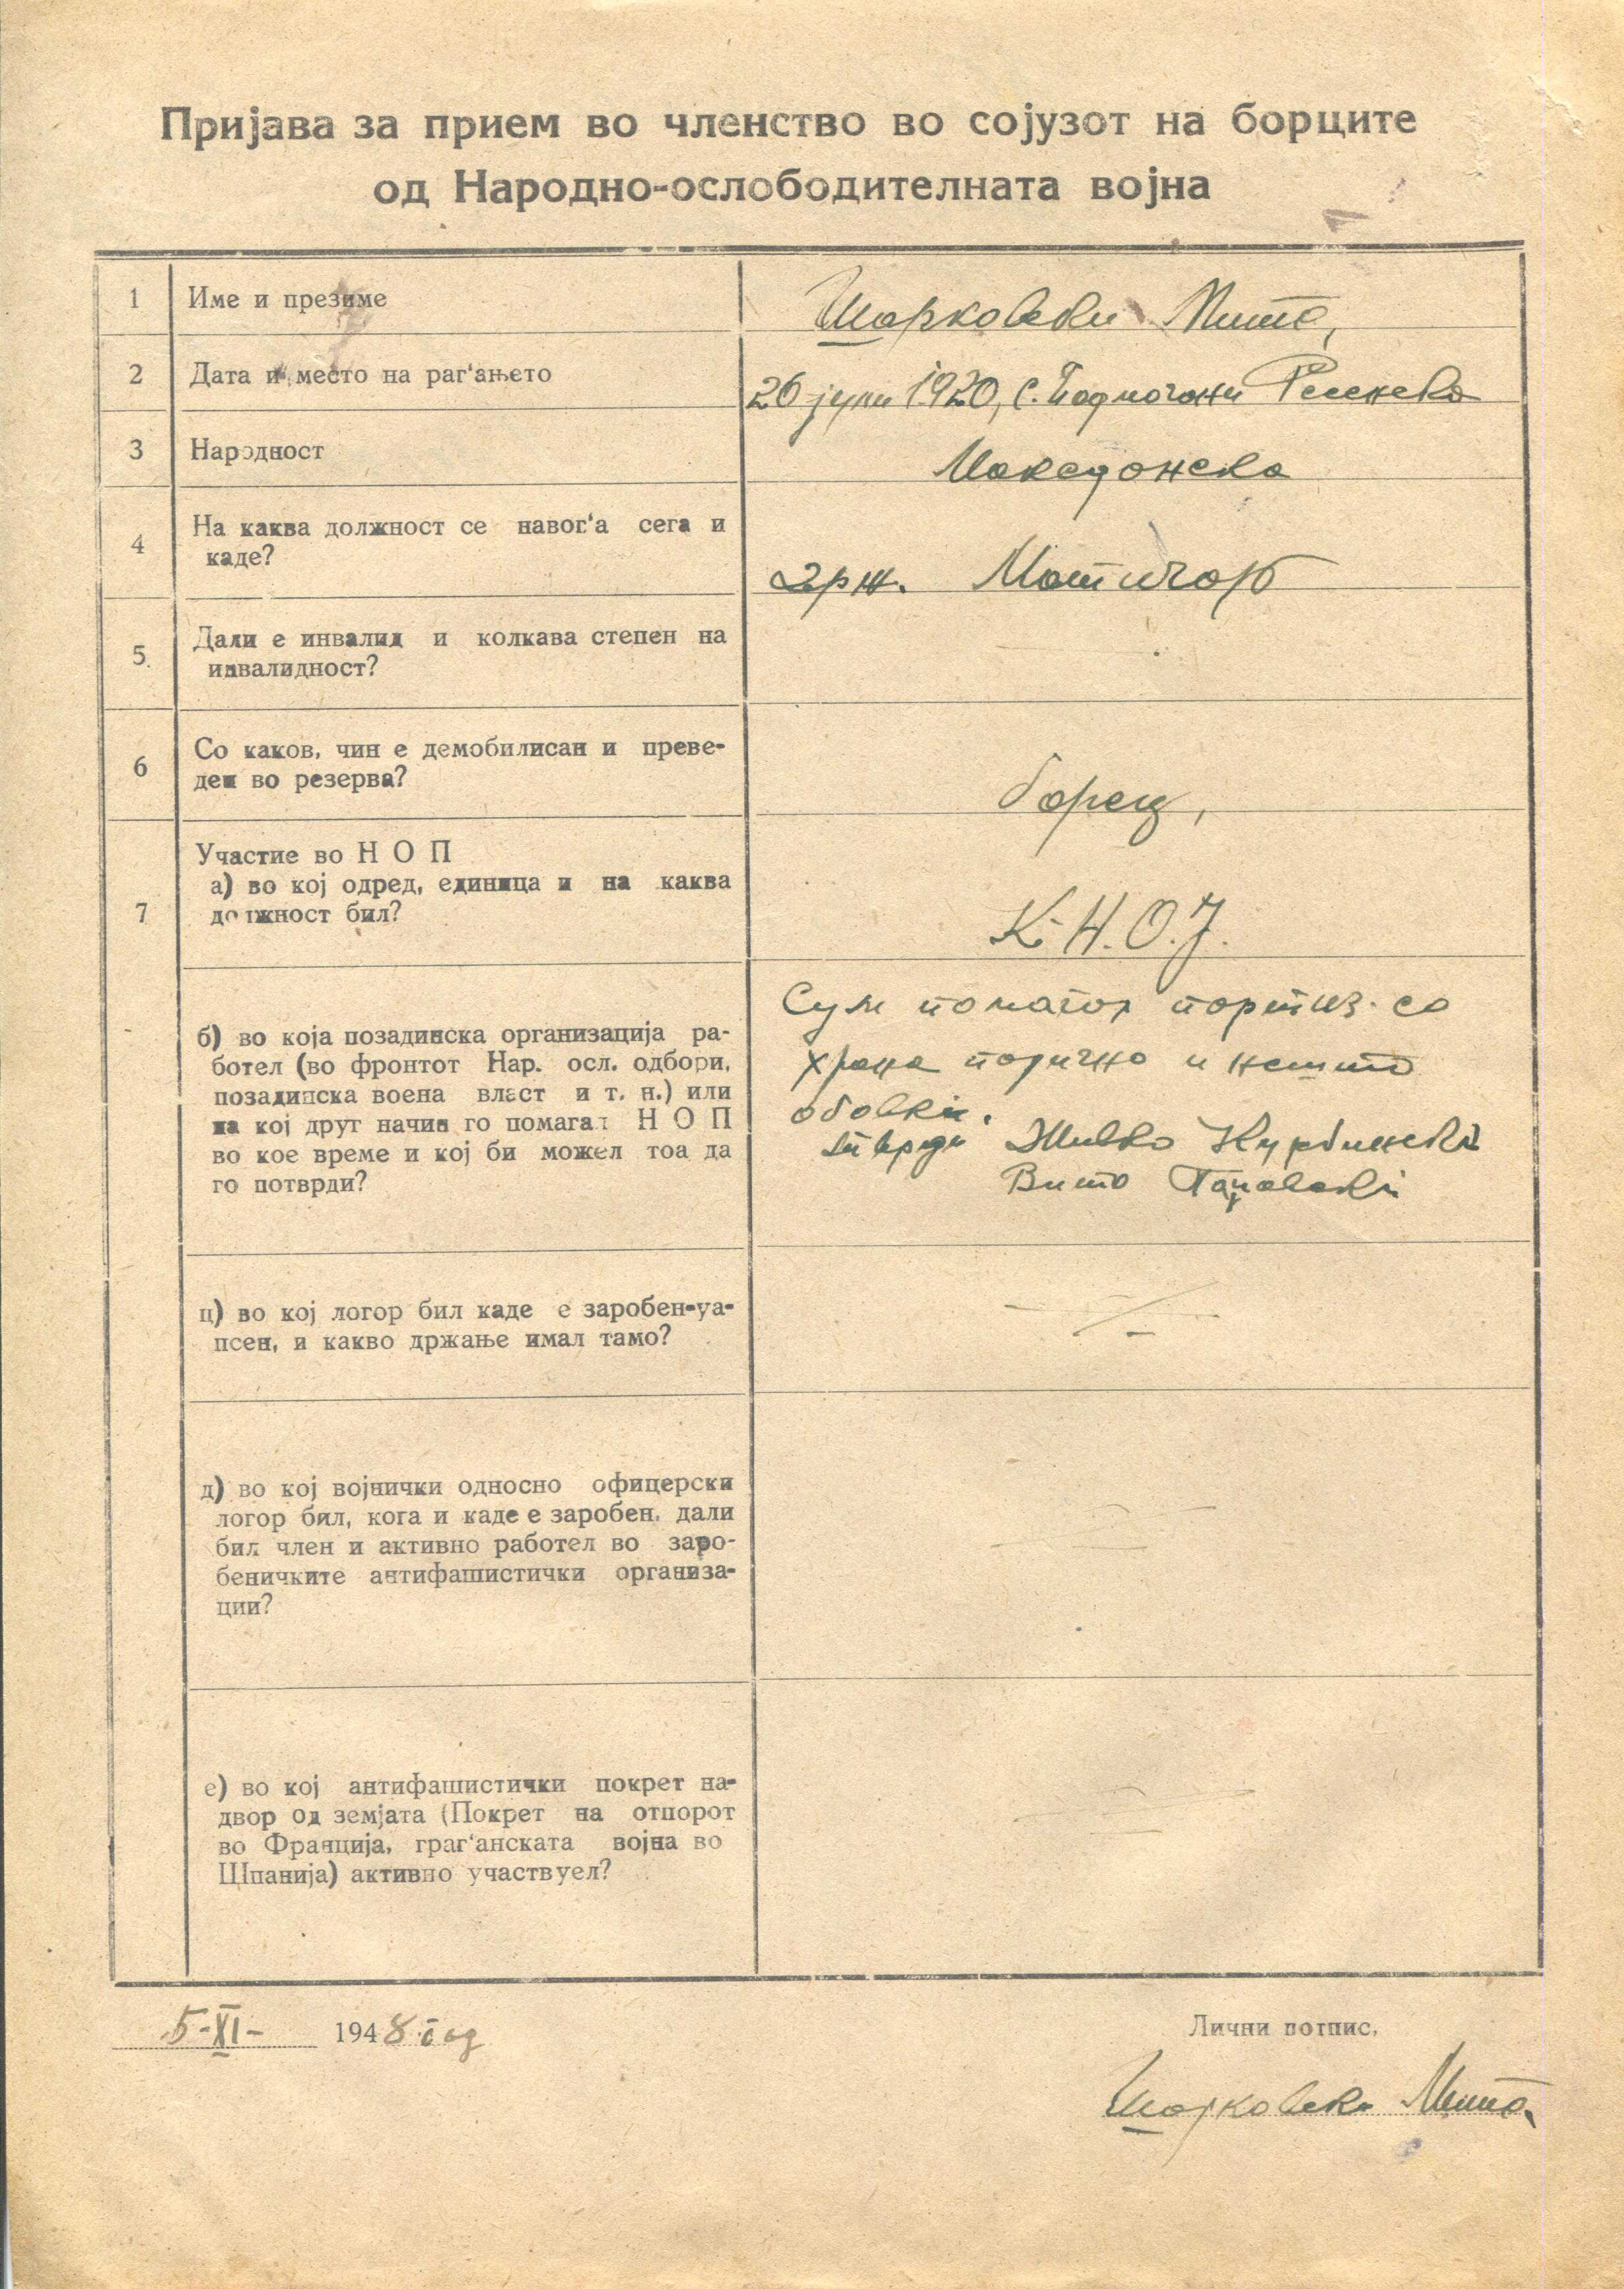 Пријава за прием во членство во сојузот на борците
од Народно-ослободителната војна
1 Име и презиме Шарковски Мито,
2 Дата и место на раг'ањето 26 јули 1920, с. Подмочани Ресенско
3 Народност Македонска
4 На каква должност се навог'а сега и
каде?
држ.
5. Дали е инвалид и колкава степен на
инвалидност?
6 Со каков, чин е демобилисан и преве-
ден во резерва?
борец,
7 Участие во Н О П
а) во кој одред, единица и на каква
должност бил?
К.Н.О.Ј.
б) во која позадинска организација ра-
ботел (во фронтот Нар. осл. одбори,
позадинска воена власт и т. н.) или
на кој друг начин го помагал Н О П
во кое време и кој би можел тоа да
го потврди?
Сум помагал партиз. со
храна подично и нешто
обовки.
тврди Живко
Вито
ц) во кој логор бил каде е заробен-уа-
псен, и какво држање имал тамо?
д) во кој војнички односно офицерски
логор бил, кога и каде е заробен, дали
бил член и активно работел во заро-
беничките антифашистички организа-
ции?
е) во кој антифашистички покрет на-
двор од земјата (Покрет на отпорот
во Франција, граг'анската војна во
Шпанија) активно участвуел?
5-XI- 1948 год
Лични потпис,
Шарковски Мито